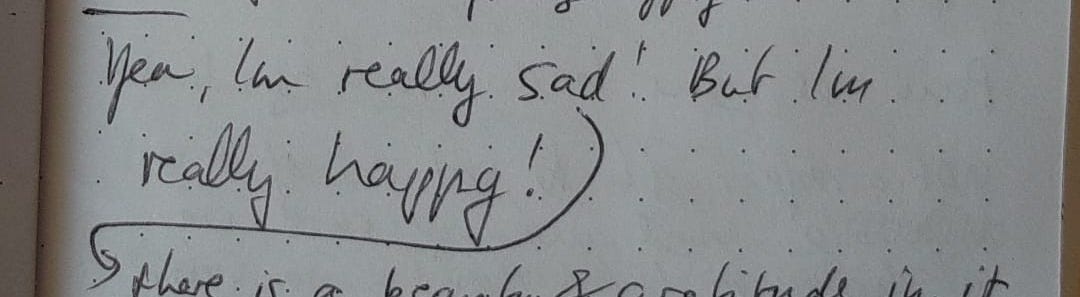 Yea, Im really sad! But Im
really happy!
there is a beauty & gratitude in it